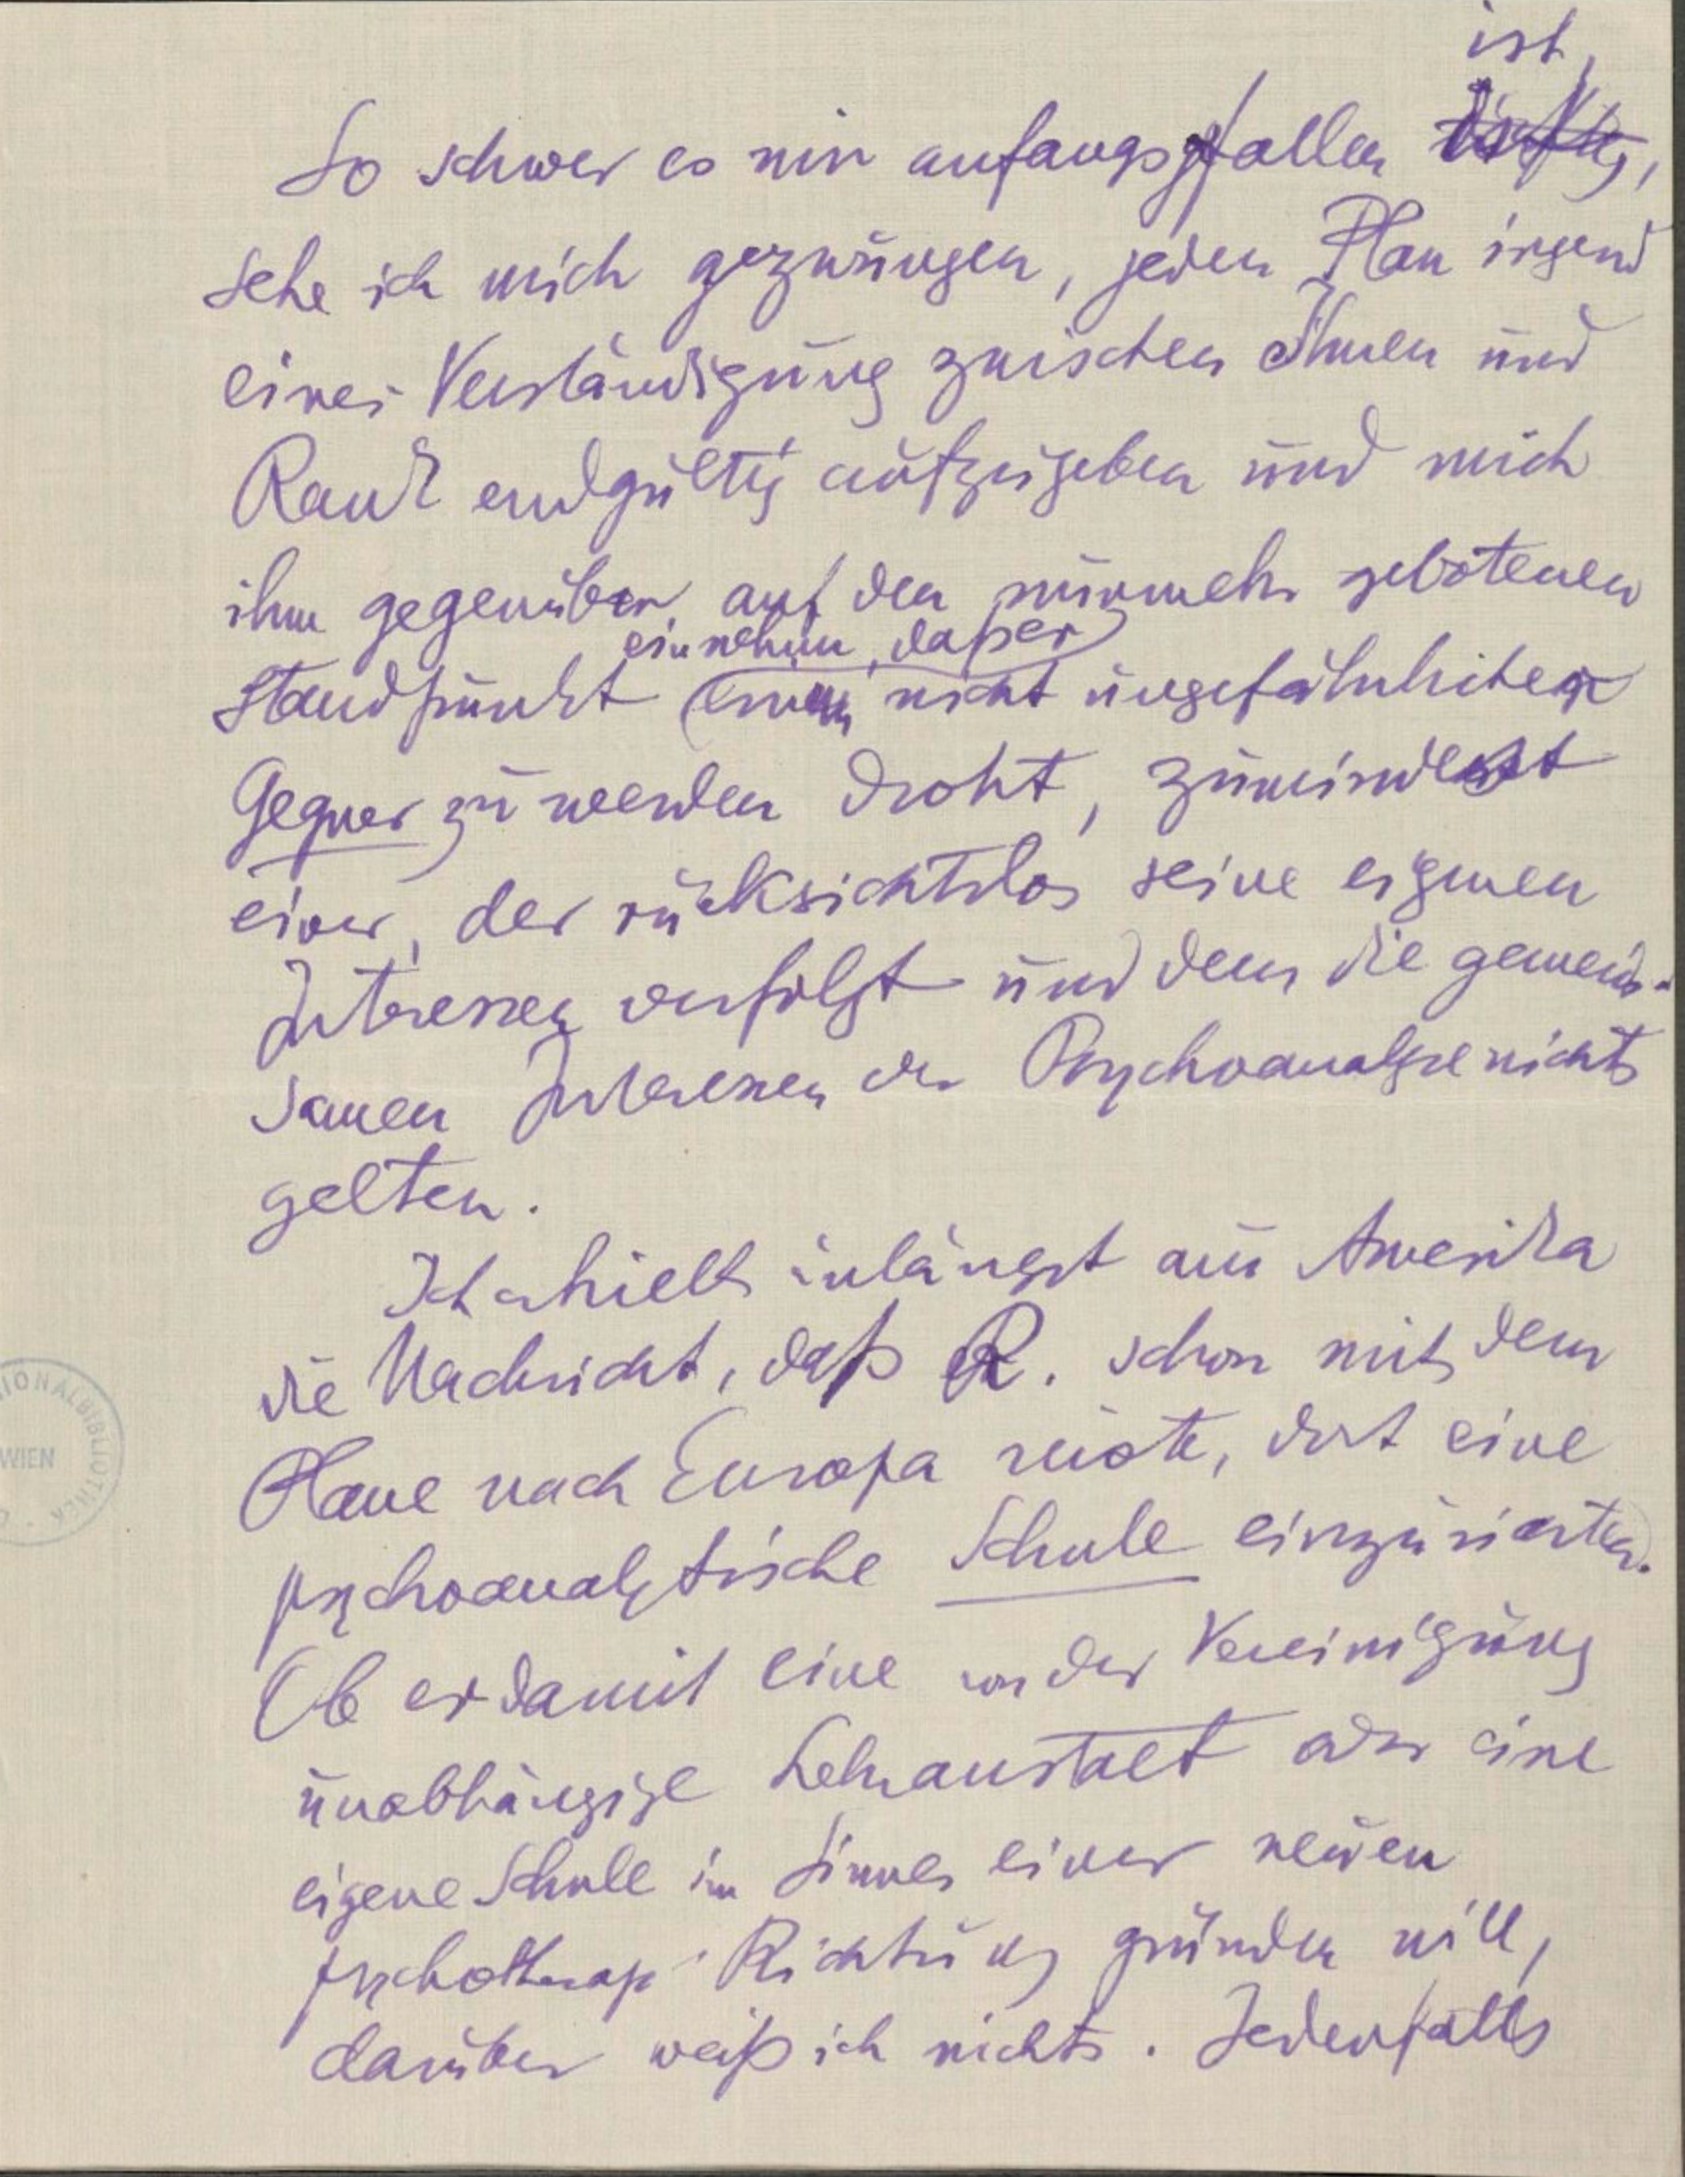 ist,
So schwer es mir anfangs gefallen
sehe ich mich gezwungen, jeden Plan irgend
einer Verständigung zwischen Ihnen und
Rank endgültig aufzugeben und mich
ihm gegenüber auf den nunmehr gebotenen
einnehm, daß er
Standpunkt nicht ungefährlicher
Gegner zu werden droht, zumindest
einer, der rücksichtslos seine eigenen
Interessen verfolgt und dem die gemein-
samen Interessen der Psychoanalyse nichts
gelten.
Ich erhielt unlängst aus Amerika
die Nachricht, daß R. schon mit dem
Plane nach Europa reiste, dort eine
psychoanalytische Schule einzurichten.
Ob er damit eine von der Vereinigung
unabhängige Lehranstalt oder eine
eigene Schule im Sinne einer neuen
psychotherap. Richtung gründen will,
darüber weiß ich nichts. Jedenfalls
IONALBIBLIOTHEK
WIEN